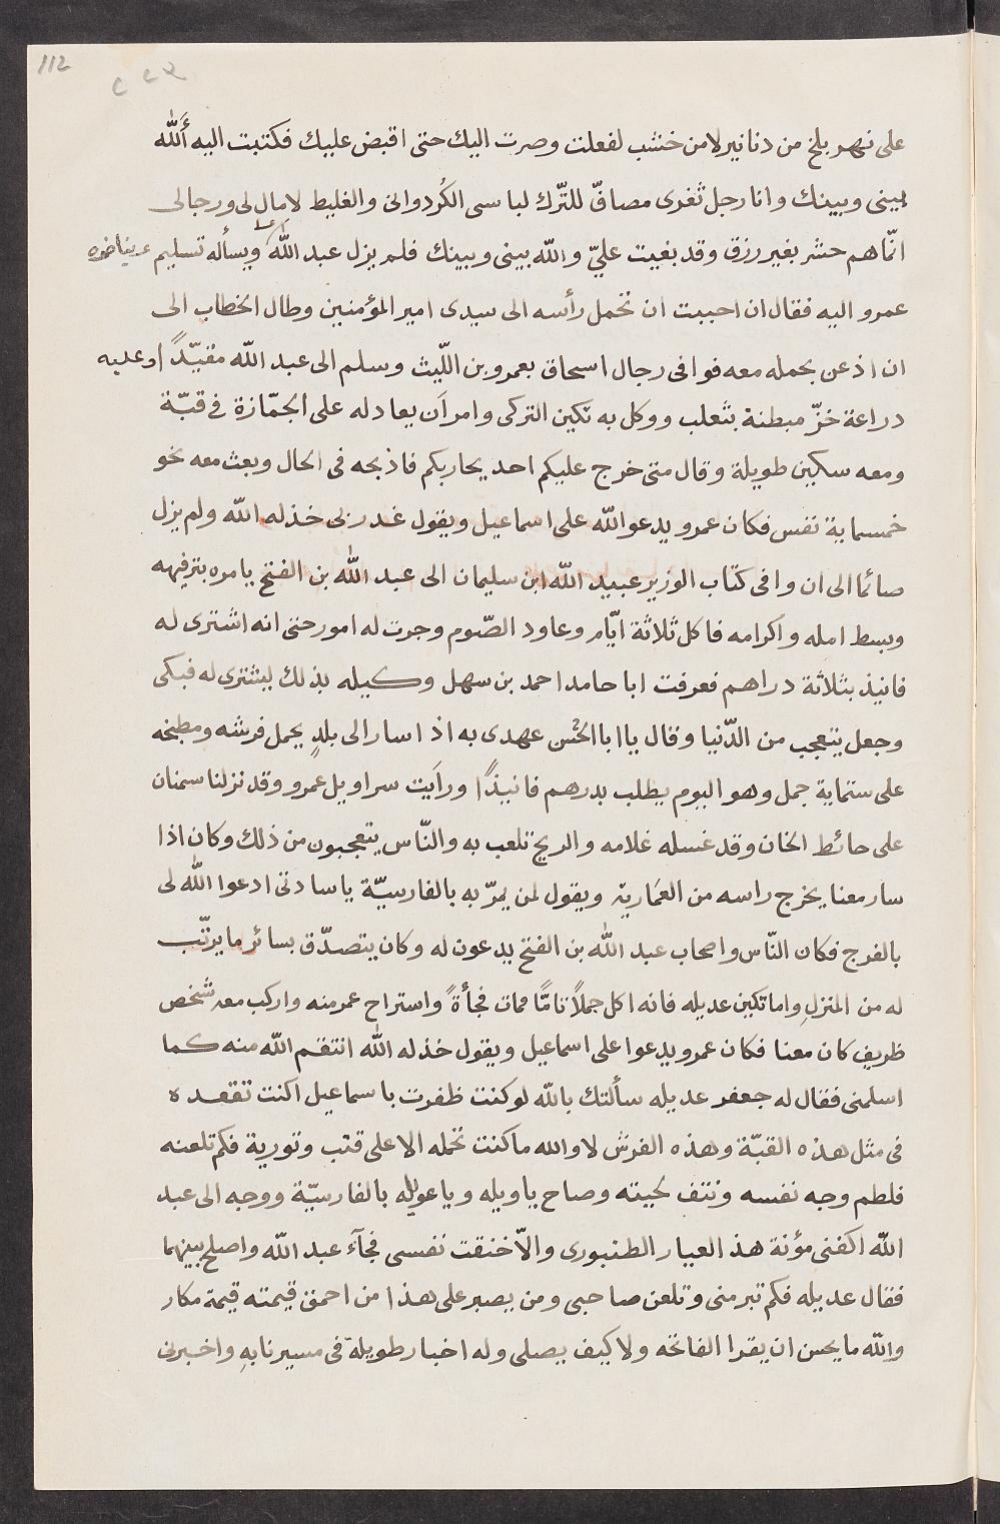 112
على نهر بلخ من دنانير لا من خشب لفعلت وصرت اليك حتى اقبض عليك فكتبت اليه أالله
بينى وبينك وانا رجل ثغرى مصافّ للتّرك لباسى الكُردوانى والغليظ لا مال لى ورجالى
انّما هم حشر بغير رزق وقد بغيت عليّ والله بينى وبينك فلم يزل عبد الله ويسأله تسليم
عمرو اليه فقال ان احببت ان تحمل رأسه الى سيدى امير المؤمنين وطال الخطاب الى
ان اذعن بحمله معه فوافى رجال اسحاق بعمرو بن اللّيث وسلم الى عبد الله مقيّدًا وعليه
دراعة خزّ مبطنة بثعلب ووكل به تكين التركى وامر أن يعادله على الجمّازة فى قبّة
ومعه سكين طويلة وقال متى خرج عليكم احد يحاربكم فاذبحه فى الحال وبعث معه نحو
خمسماية نفس فكان عمرو يدعو الله على اسماعيل ويقول غدر بى خذله الله ولم يزل
صائما الى ان وافى كتاب الوزير عبيد الله ابن سليمان الى عبد الله بن الفتح يامره بترفيهه
وبسط امله واكرامه فاكل ثلاثة ايّام وعاود الصّوم وجرت له امور حتى انه اشترى له
فانيذ بثلاثة دراهم فعرفت ابا حامد احمد بن سهل وكيله بذلك ليشترى له فبكى
وجعل يتعجب من الدّنيا وقال يا ابا الحُسن عهدى به اذا سار الى بلدٍ يحمل فرشه ومطبخه
على ستماية جمل وهو اليوم يطلب بدرهم فانيذًا ورأيت سراويل عمرو وقد نزلنا سمنان
على حائط الخان وقد غسله غلامه والريح تلعب به والنّاس يتعجبون من ذلك وكان اذا
سار معنا يخرج راسه من العمارية ويقول لمن يمرّ به بالفارسيّة يا سادتى ادعوا الله لى
بالفرج فكان النّاس واصحاب عبد الله بن الفتح يدعون له وكان يتصدّق بسائر ما يرتّب
له من المنزلِ واما تكين عديله فانه اكل جملاً تامًّا فمات فجأةً واستراح عمر منه واركب معه شخص
ظريف كان معنا فكان عمرو يدعوا على اسماعيل ويقول خذله الله انتقم الله منه كما
اسلمنى فقال له جعفر عديله سألتك بالله لو كنت ظفرت باسماعيل اكنت تقعده
فى مثل هذه القبّة وهذه الفرش لا والله ما كنت تحمله الا على قتب وتورية فكم تلعنه
فلطم وجه نفسه ونتف لحيته وصاح يا ويله ويا عويله بالفارسيّة ووجه الى عبد
الله اكفنى مؤنة هذ العيار الطنبورى والاّ خنقت نفسى فجآء عبد الله واصلح بينهما
فقال عديله فكم تبرمنى وتلعن صاحبى ومن يصبر على هذا من احمق قيمته قيمة مكار
والله ما يحسن ان يقرا الفاتحه ولا كيف يصلى وله اخبار طويلة فى مسيرنا به واخبرنى